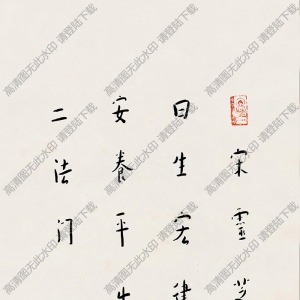 宋靈芝
曰生宏律
安養平生
二法门
高清图无此水印 请登陆下载
高清图无此水印 请登陆下载
高清图无此水印 请登陆下载
高清图无此水印 请登陆下载